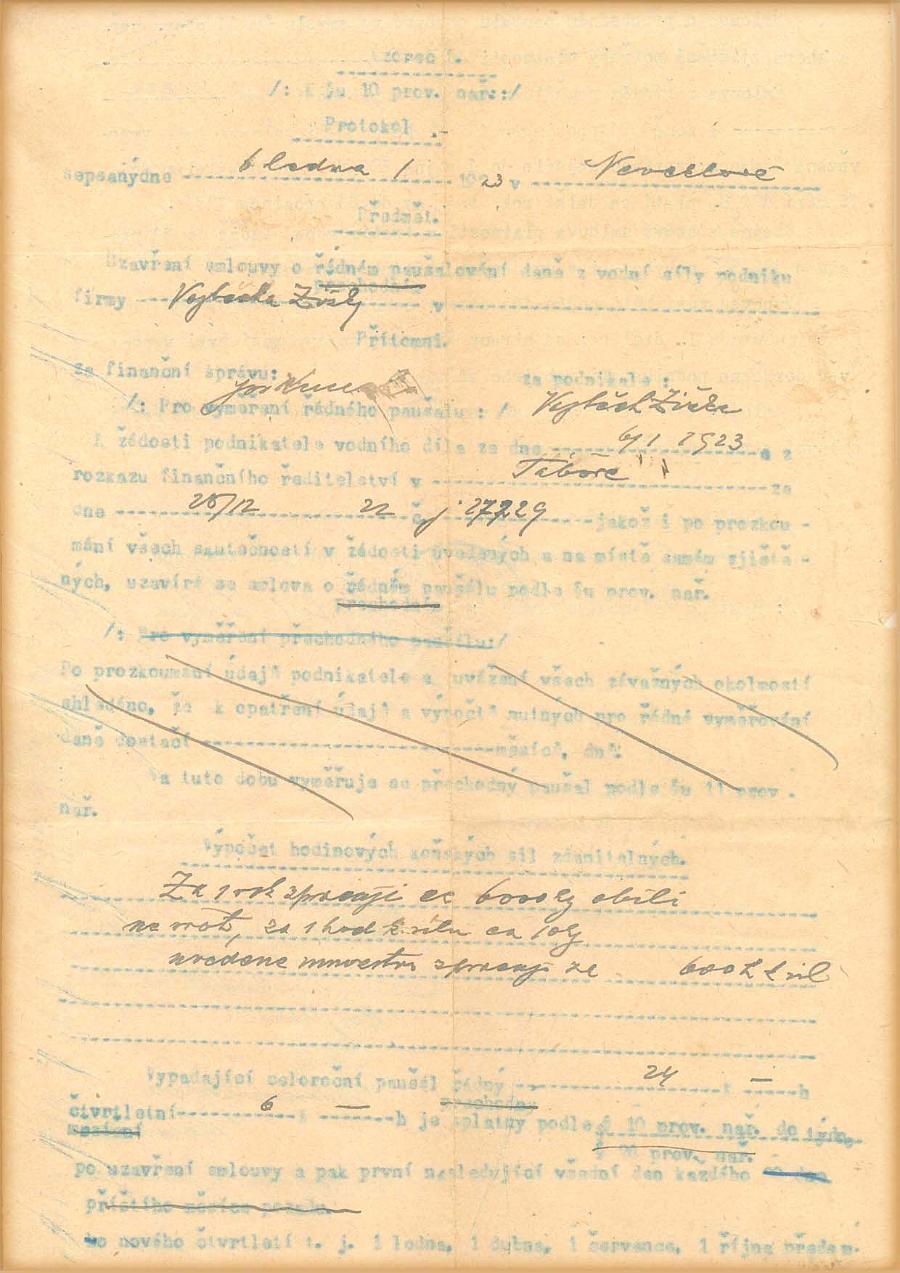 Vzorec 1.
/: K §u 10 prov. nař.:/
Protokol .-
sepsanýdne 6 ledna 1 1923 v
Předmět.
Uzavření smlouvy o řádném paušalování daně z vodní síly podniku
přechodní
firmy Vojtěcha v
Přítomni.
za finanční správu: za podnikale :
/: Pro vyměření řádného paušalu : / Vojtěch
K žádosti podnikatele vodního díla ze dne 6/1 1923 a z
rozkazu finančního ředitelství v Táboře ze
dne 28/12 22 č j 27229 jakož i po prozkou -
mání všech skutečností v žádosti uvedených a na místě samém zjiště -
ných, uzavírá se smlova o řádném paušálu podle §u prov. nař.
přechodní
/: Pro vyměření přechodného paušálu:/
Po prozkoumání údajů podnikatele a uvázení všech závažných okolností
shledáno, že k opatření údajů a výpočtů nutných pro řádné vyměřování
daně dostačí měsíců, dnů.
Na tuto dobu vyměřuje se přechodný paušal podle §u 11 prov .
nař.
Výpočet hodinových koňských sil zdanitelných.
Za 1 rok zpracuji ca 6000 kg obilí
na šrot, za 1 hod k sílu ca 10 kg
uvedené množství zpracuji ze 600 h k sil
Vypadající celoroční paušál řádný 24 K — h
přechodny
čtvrtletní 6 K — h je splatny podle § 10 prov. nař. do týdne
mesíční
§ 20 prov. nař.
po uzavření smlouvy a pak první následující všední den kazdého
příštího měsíce
ho nového čtvrtletí t. j. 1 ledna, 1 dubna, 1 července, 1 října předem.